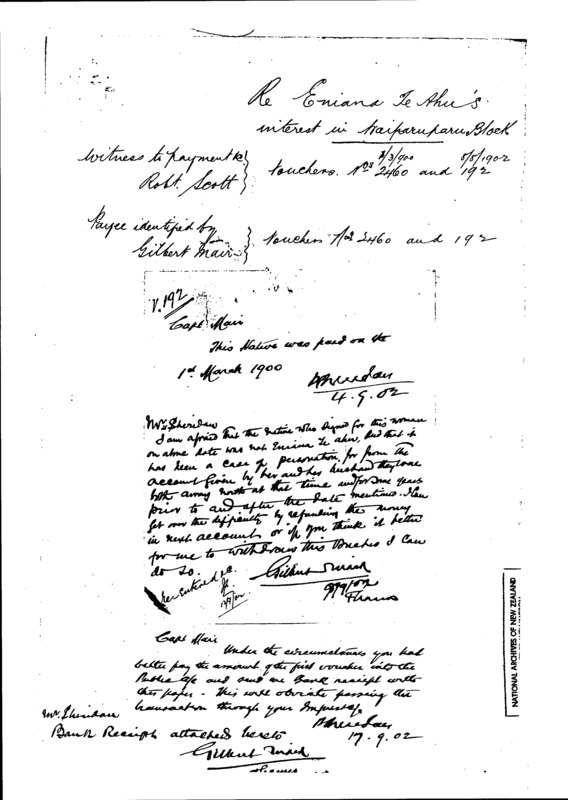 Re Eniana Te Ahu's
interest in Waiparuparu Block
Witness to payment
Robt. Scott
Vouchers. Nos 2460 and 192
2/3/900 8/8/1902
Payee identified by
Gilbert Mair
Vouchers Nos 2460 and 192
V. 192
Capt Mair
This Native was paid on the
1st March 1900
PSheridan
4.9.02
Mr Sheridan
I am afraid that the native who signed for this woman
on above date was not Eniana Te Ahu, and that it
has been a case of personation, for from the
account given by her and her husband they were
both away north at that time and for some years
prior to and after the date mentioned. I can
get over the difficulty by refunding the money
in next account or if you think it better
for me to withdraw this Voucher I can
do so.
Gilbert Mair
9/9/02
Thames
Capt Mair
Under the circumstances you had
better pay the amount of the first voucher into the
Public a/c and send me Bank receipt with
this paper - This will obviate passing the
transaction through your Imprest a/c
PSheridan
17.9.02
Mr. Sheridan
Bank Receipt attached hereto
Gilbert Mair
Thames
NATIONAL ARCHIVES OF NEW ZEALAND